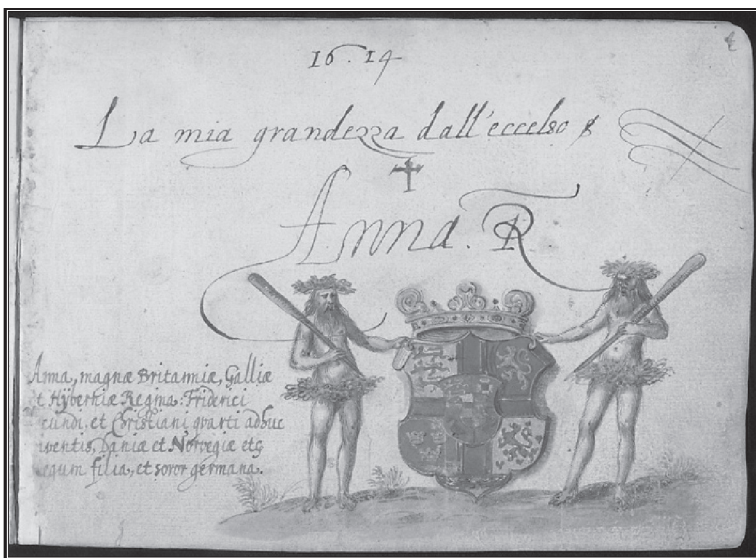 16.14
La mia grandezza dall'eccelso
Anna. R
Anna, magnæ Britanniæ, Galliæ
et Hÿberniæ Regina. Friderici
cundi, et Christiani qvarti adhuc
iventis, Daniæ et Norvegiæ etç
egum filia, et soror germana.